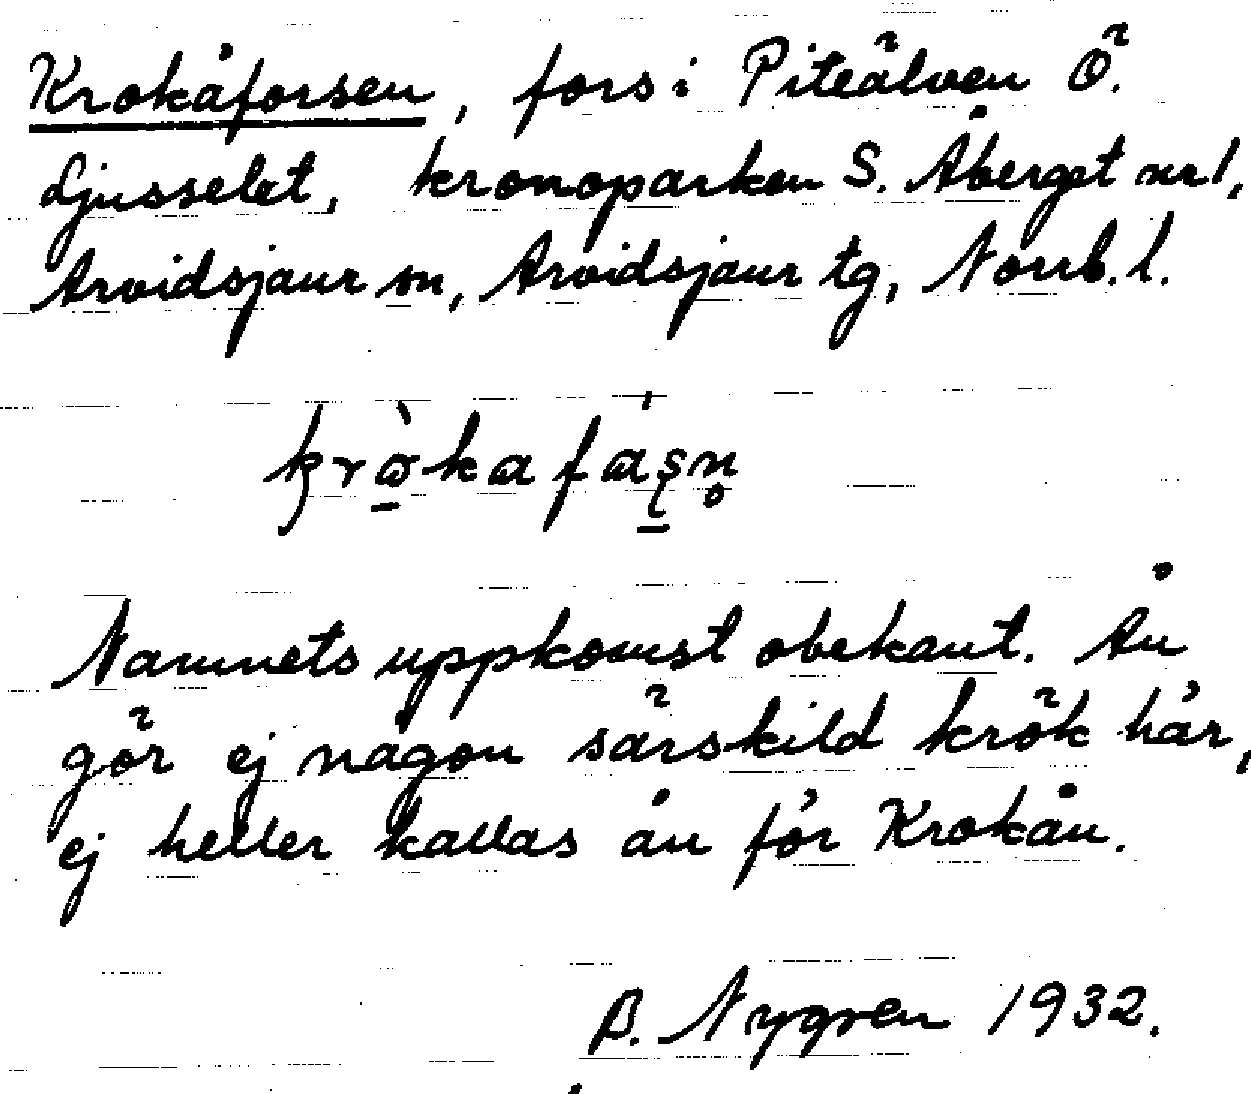 Krokåforsen, fors i Piteälven Ö.
Ljusselet, kronoparken S. Åberget nr 1,
Arvidsjaur sn, Arvidsjaur tg, Norrb. l.
Namnets uppkomst obekant. Ån
gör ej någon särskild krök här,
ej heller kallas ån för Krokån.
B. Nygren 1932.